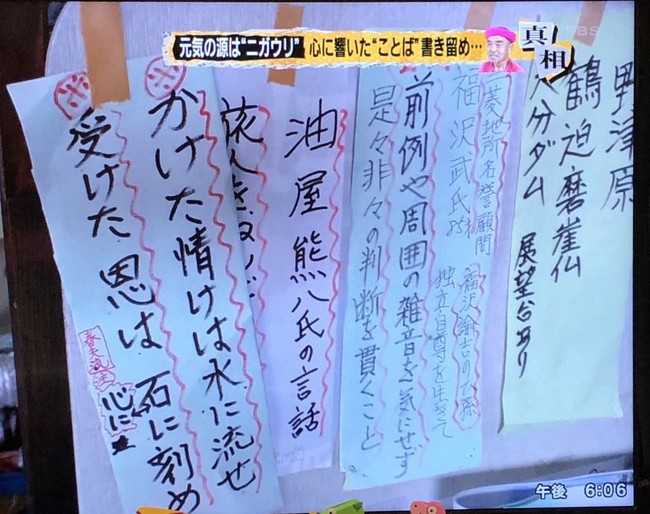 元気の源は"ニガウリ" 心に響いた"ことば"書き留め…
真相
野津原
鶴迫磨崖仏
大分ダム 展望台あり
菱地所名誉顧問
福沢武氏
福沢諭吉のひ孫
独立自尊を生きて
前例や周囲の雑音を気にせず
是々非々の判断を貫くこと
油屋熊八氏の言話
旅人を
※かけた情けは水に流せ
※受けた恩は石に刻め
心に
午後 6:06